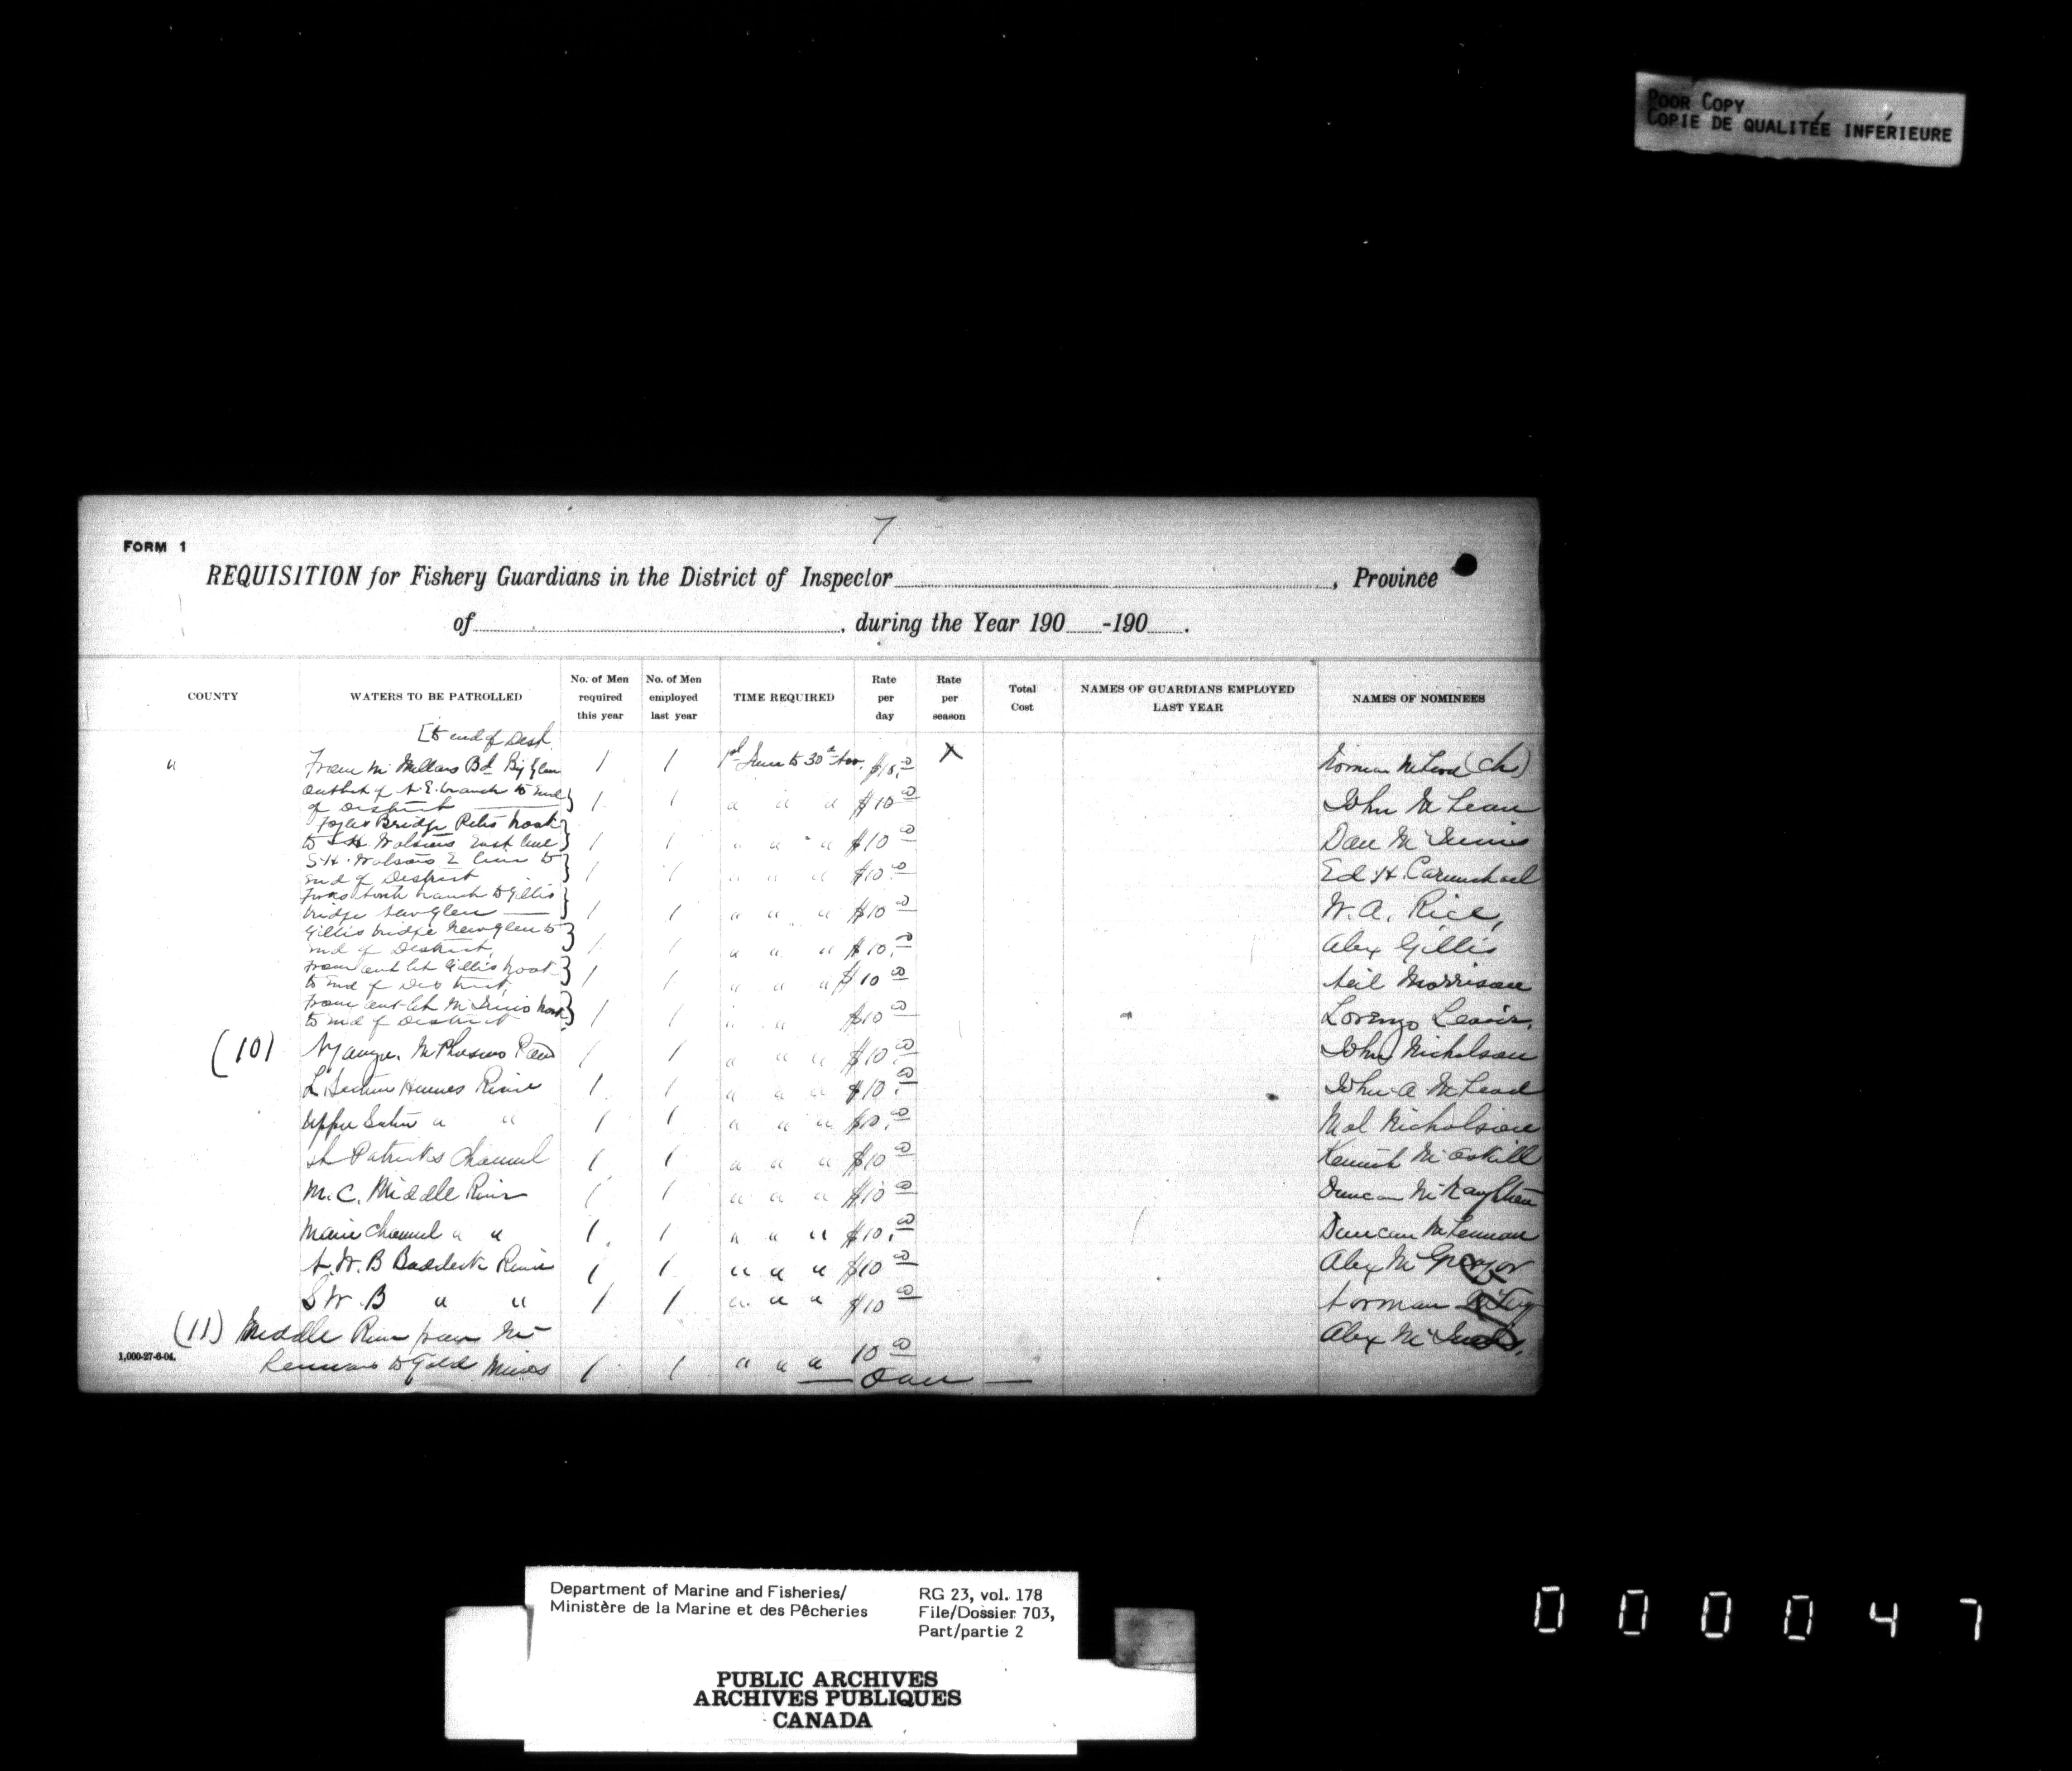 POOR COPY
COPIE DE QUALITÉE INFÉRIEURE
7
FORM 1
REQUISITION for Fishery Guardians in the District of Inspector , Province
of , during the Year 190 -190 .
COUNTY WATERS TO BE PATROLLED No. of Men required this year No. of Men employed last year TIME REQUIRED Rate per day Rate per season Total Cost NAMES OF GUARDIANS EMPLOYED LAST YEAR NAMES OF NOMINEES
[to end of Dist.
" From Mc Millans Bd Big Glen 1 1 1st June to 30th Nov. X Norman McLeod (Ch)
outlet of N.E. branch to end
of District 1 1 " " " $10.00 John McLean
Bridge brook
to S.H. Watsons East line 1 1 " " " $10.00 Dan McInnis
S.H. Watsons E line to
end of District 1 1 " " " $10.00 Ed H. Carmichael
Forks branch to Gillis
bridge New Glen 1 1 " " " $10.00 W.A. Rice,
Gillis bridge New Glen to
end of District, 1 1 " " " $10.00 Alex Gillis
From outlet Gillis brook
to end of District, 1 1 " " " $10.00 Neil Morrison
From outlet McInnis brook
to end of District 1 1 " " $10.00 Lorenzo
(10) Nyanza. 1 1 " " " $10.00 John Nicholson
L. Humes River 1 1 " " " $10.00 John A McLeod
Upper " " 1 1 " " " $10.00 Mal Nicholson
St Patricks Channel 1 1 " " " $10.00 Kenneth McAskill
M.C. Middle River 1 1 " " " $10.00 Duncan McNaughton
Main Channel " " 1 1 " " " $10.00 Duncan McLennan
N.W.B Baddeck River 1 1 " " " $10.00 Alex McGregor
S W. B " " 1 1 " " " $10.00 Norman
(11) Middle River from Mc Alex
Lennans to Gold Mines 1 1 " " " 10.00
Over
1,000-27-6-04.
Department of Marine and Fisheries/
Ministère de la Marine et des Pêcheries
RG 23, vol. 178
File/Dossier 703,
Part/partie 2
PUBLIC ARCHIVES
ARCHIVES PUBLIQUES
CANADA
000047